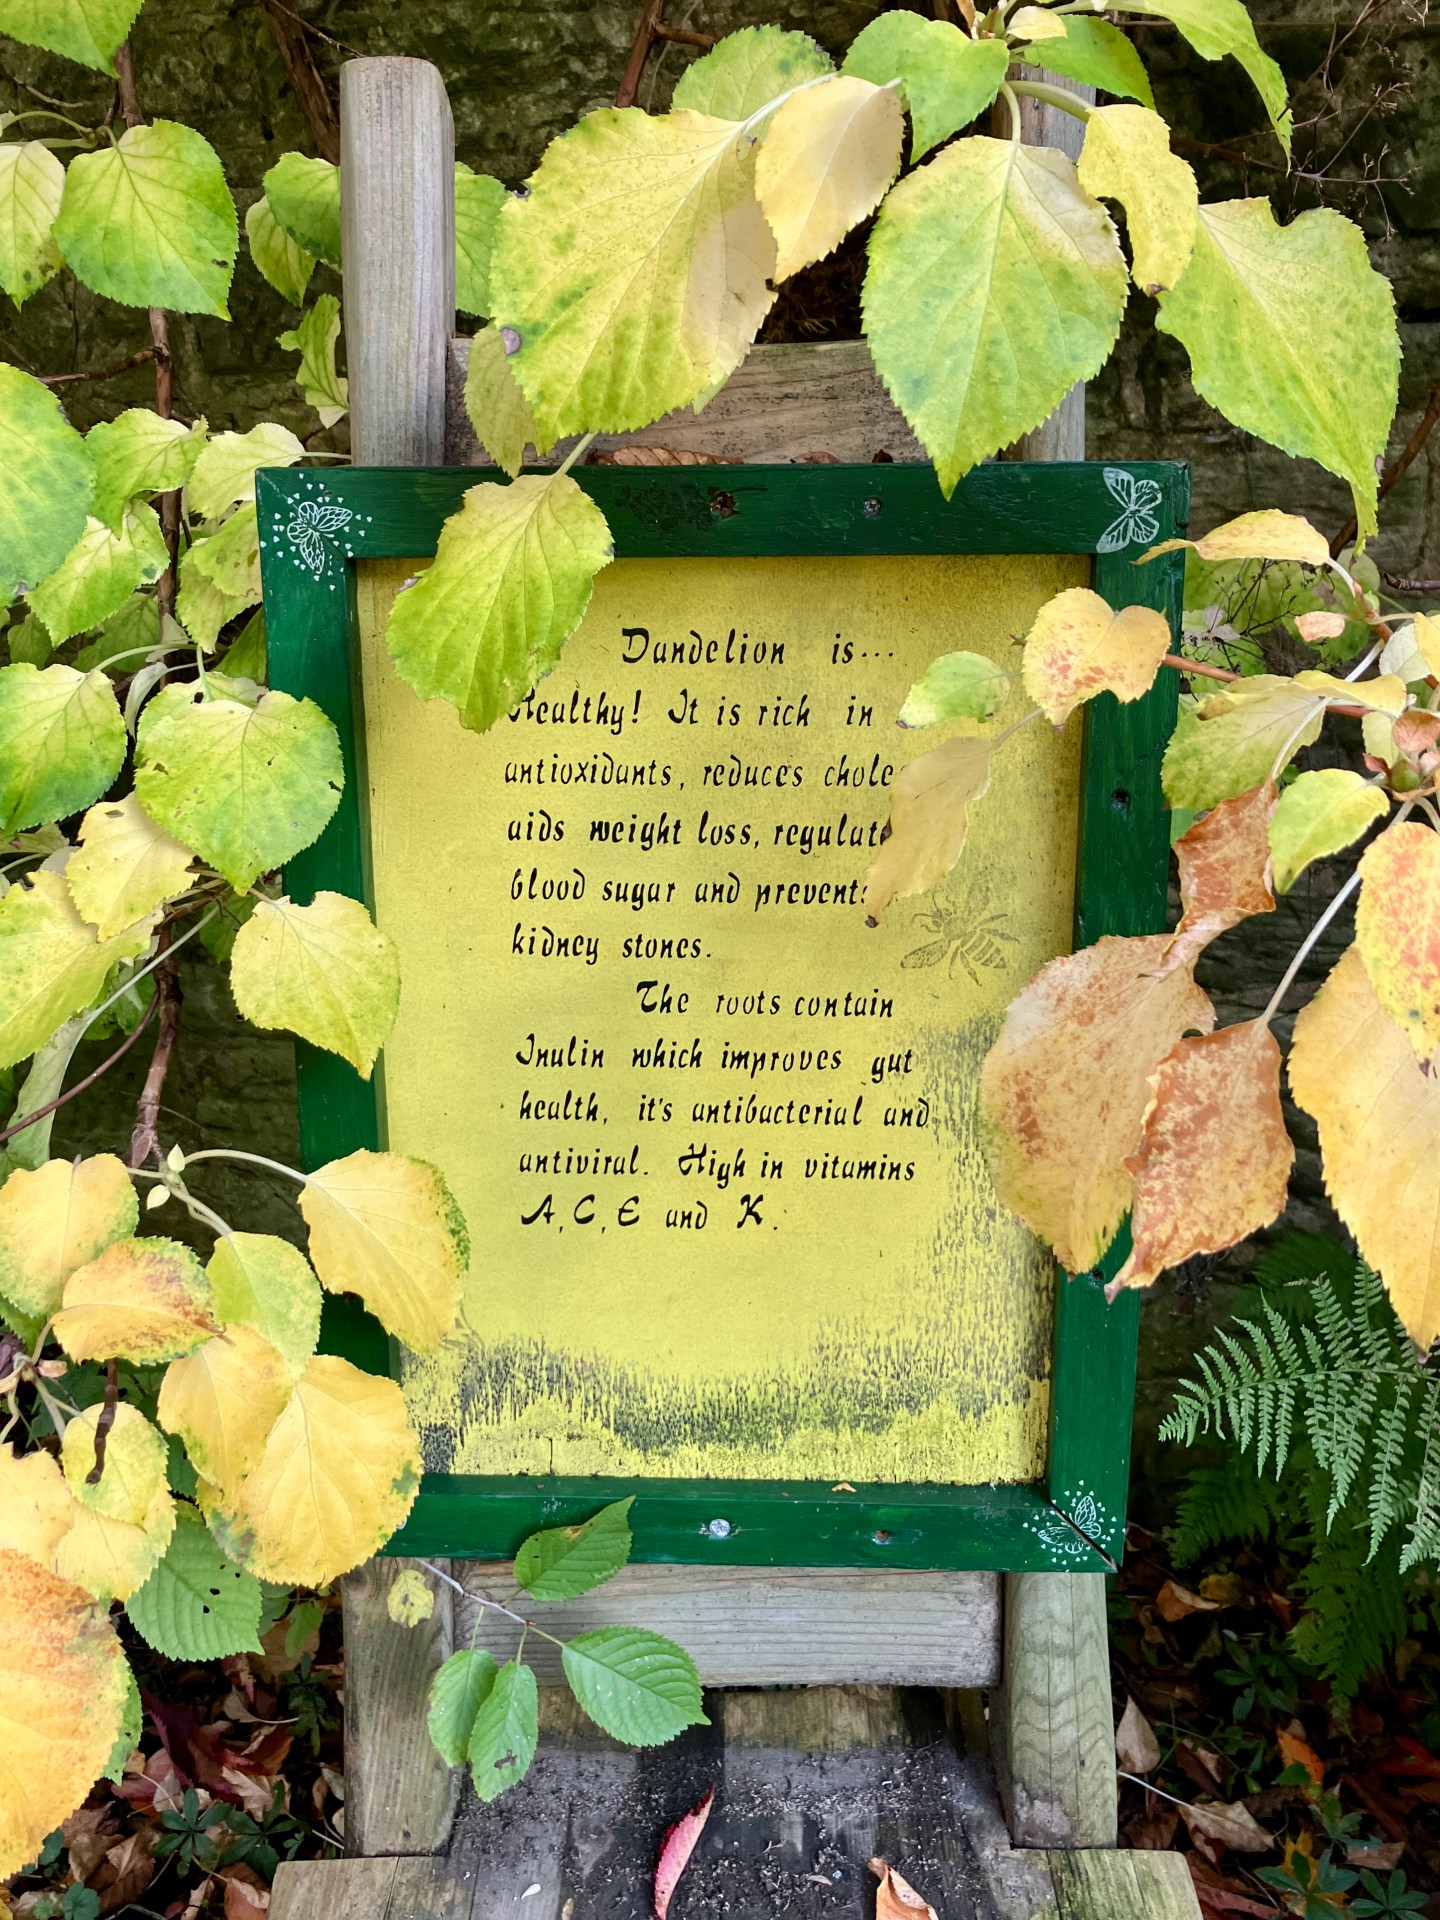 Dandelion is...
Healthy! It is rich in
antioxidants, reduces
aids weight loss,
blood sugar and
kidney stones.
The roots contain
Inulin which improves gut
health, it's antibacterial and
antiviral. High in vitamins
A, C, E and K.